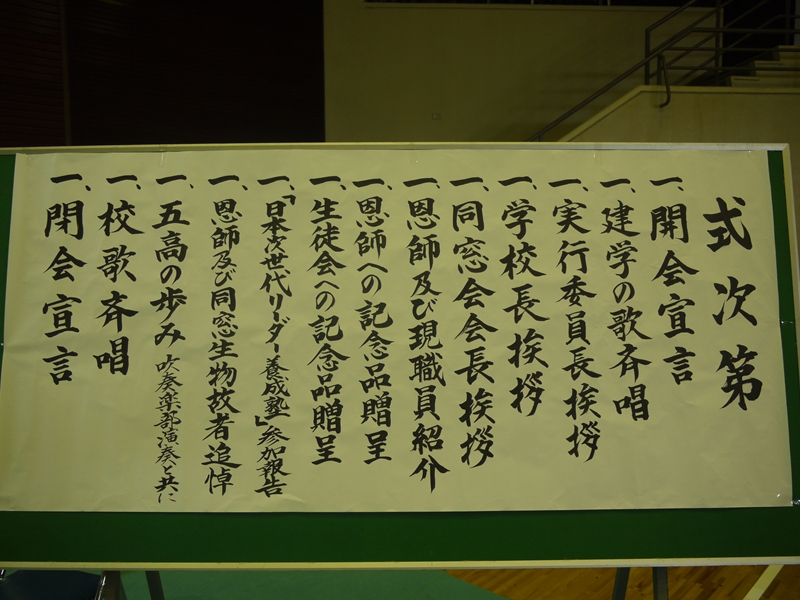 式次第
一、開会宣言
一、建学の歌斉唱
一、実行委員長挨拶
一、学校長挨拶
一、同窓会会長挨拶
一、恩師及び現職員紹介
一、恩師への記念品贈呈
一、生徒会への記念品贈呈
一、「日本次世代リーダー養成塾」参加報告
一、恩師及び同窓生物故者追悼
一、五高の歩み 吹奏楽部演奏と共に
一、校歌斉唱
一、閉会宣言